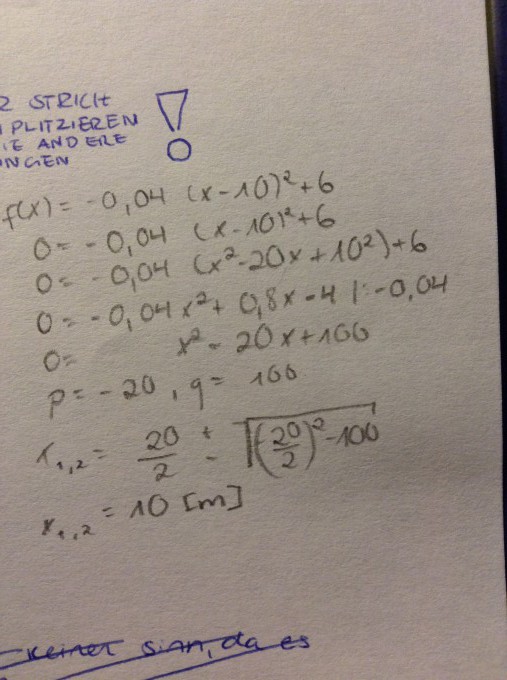 STRICH !
PLITZIEREN
IE ANDERE
NGEN
f(x) = -0,04 (x-10)²+6
0 = -0,04 (x-10)²+6
0 = -0,04 (x²-20x+10²)+6
0 = -0,04x² + 0,8x - 4 |: -0,04
0 = x² - 20x + 100
p = -20, q = 100
x₁,₂ = 20/2 ± √((20/2)² - 100)
x₁,₂ = 10 [m]
keinen sinn, da es